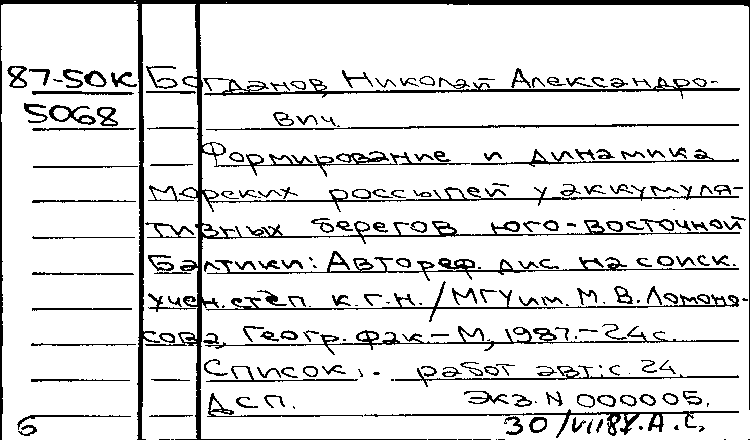 87-50К Богданов, Николай Александро-
5068 вич.
Формирование и динамика
морских россыпей у аккумуля-
тивных берегов юго-восточной
Балтики: Автореф. дис. на соиск.
учен. степ. к.г.н. / МГУ им. М. В. Ломоно-
сова, Геогр. фак. – М, 1987. – 24 с.
Список. работ авт: с 24.
ДСП. Экз. N 000005.
6 30/VII 87. А. С.